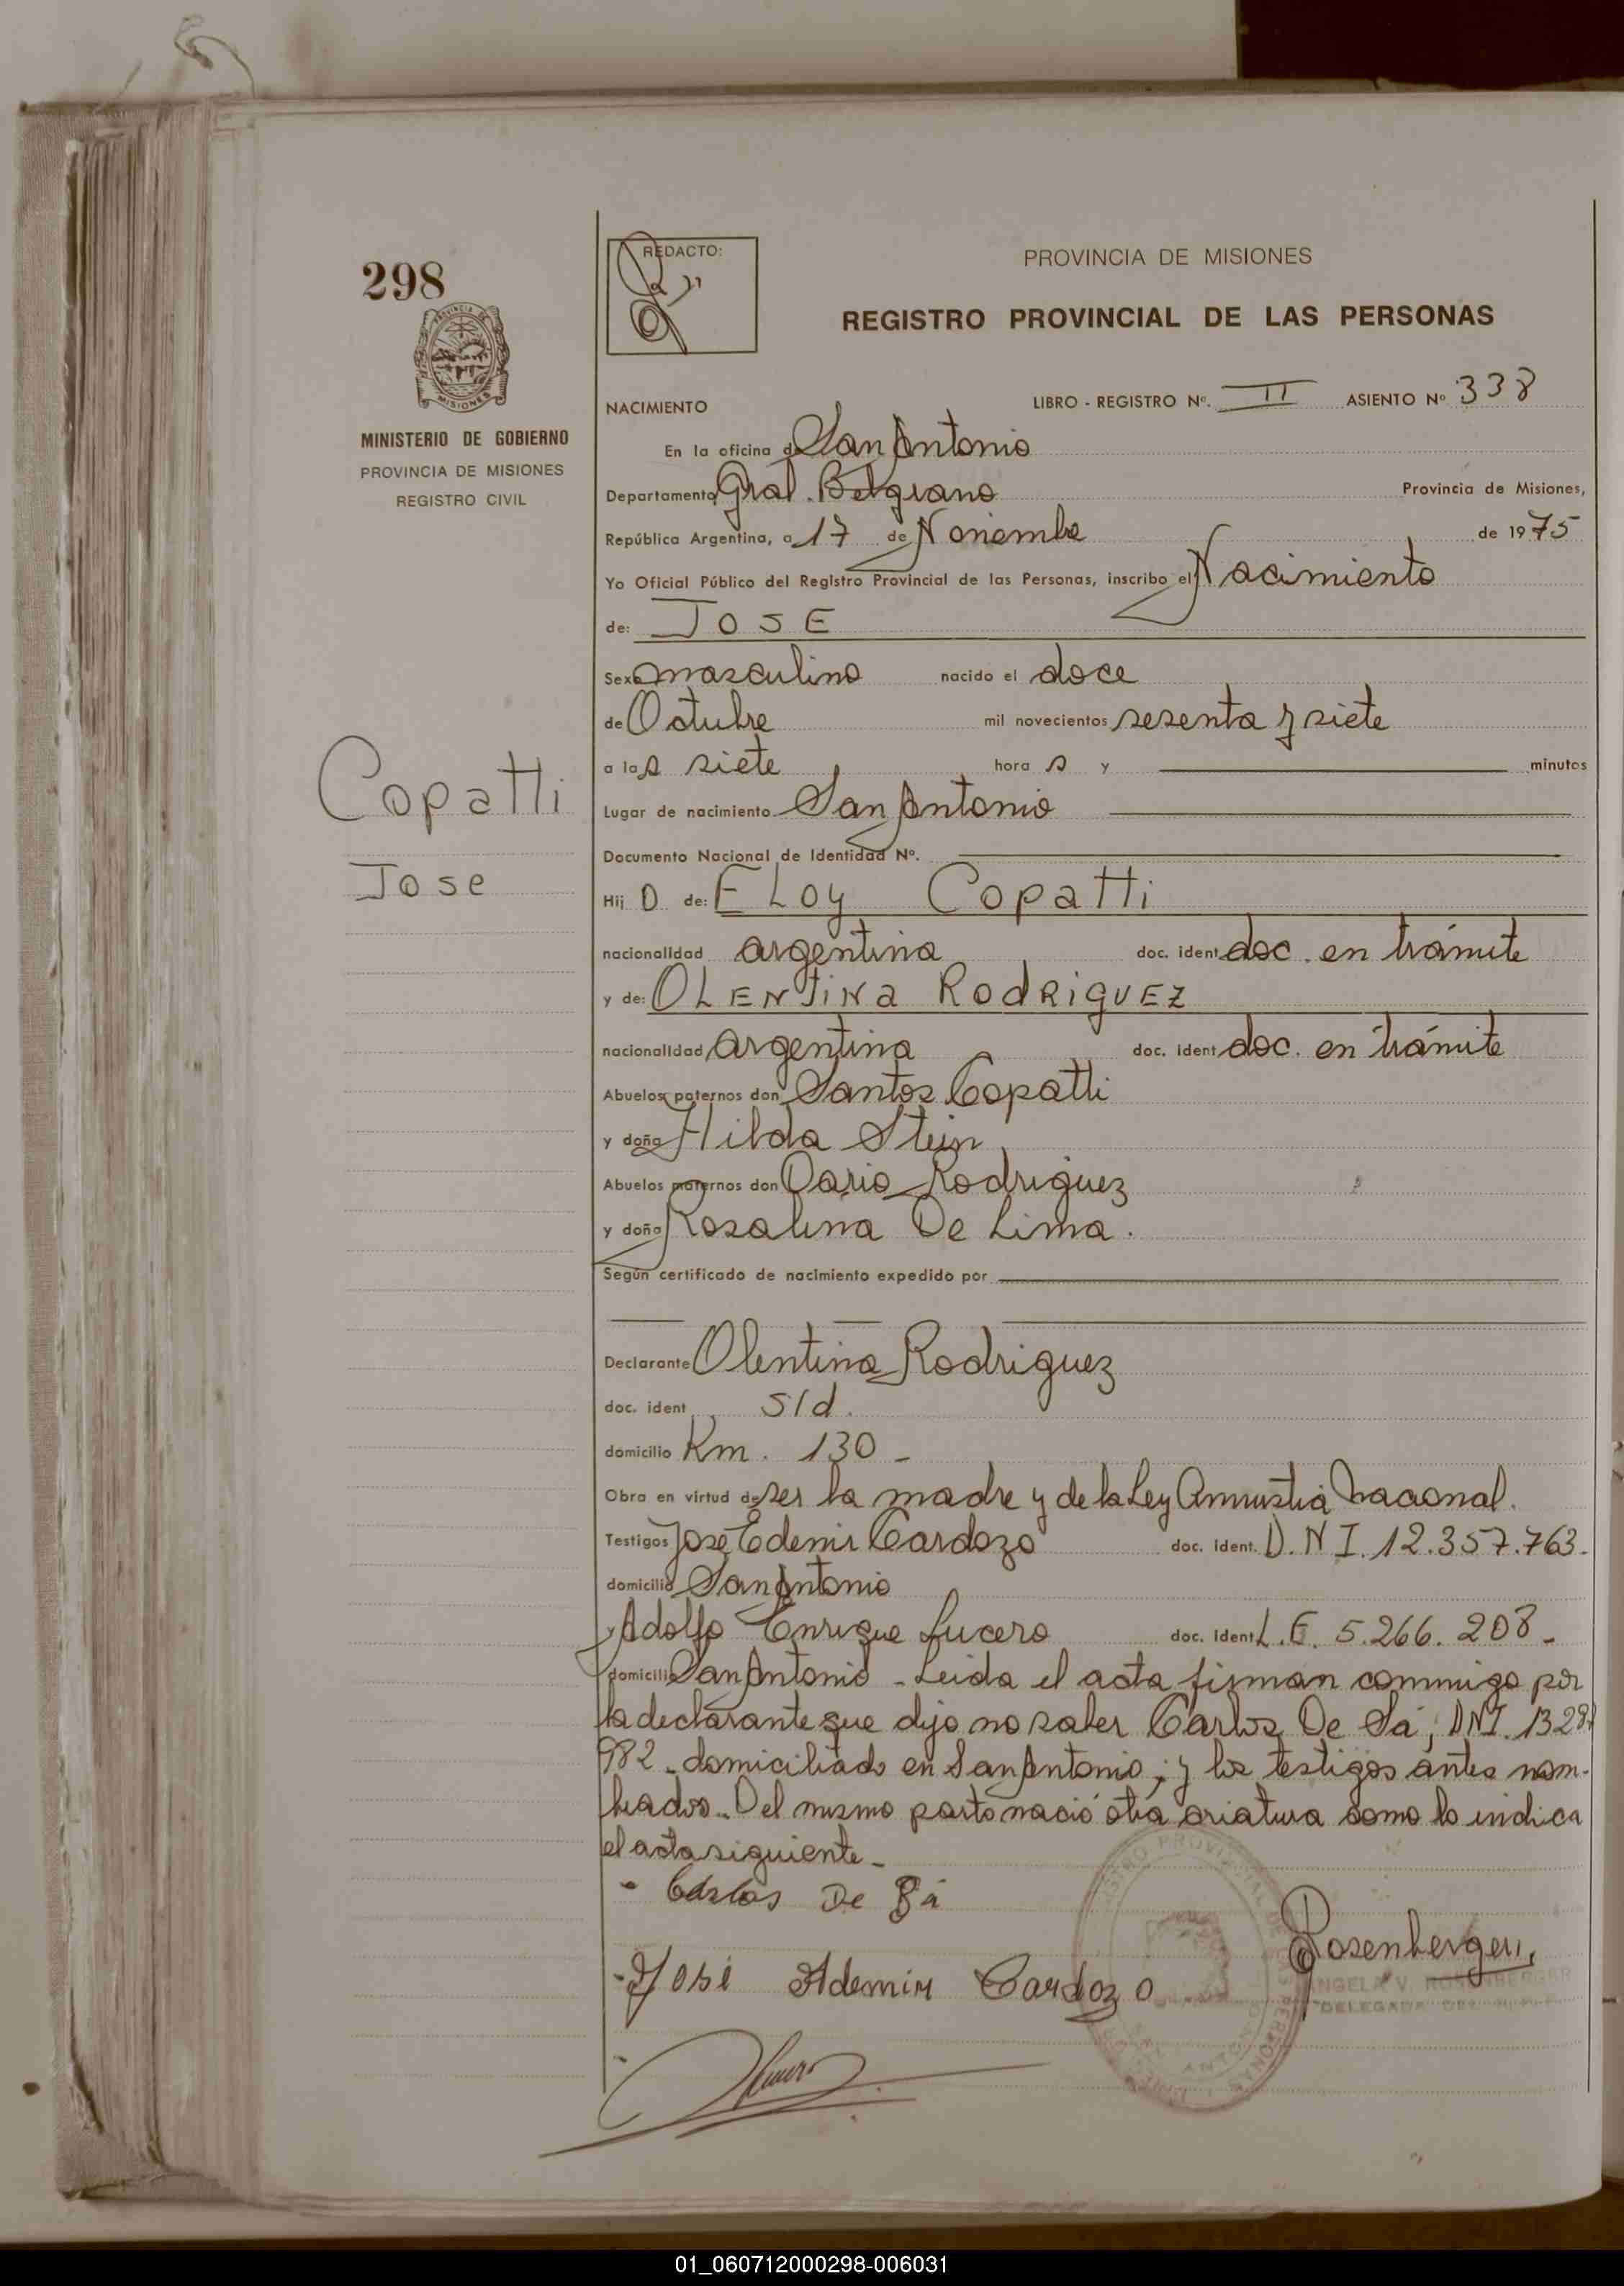 298
REDACTO:
PROVINCIA DE MISIONES
REGISTRO PROVINCIAL DE LAS PERSONAS
PROVINCIA DE
MISIONES
MINISTERIO DE GOBIERNO
PROVINCIA DE MISIONES
REGISTRO CIVIL
NACIMIENTO LIBRO - REGISTRO Nº. II ASIENTO Nº 338
En la oficina de San Antonio
Departamento Gral. Belgrano Provincia de Misiones,
República Argentina, a 17 de Noviembre de 1975
Yo Oficial Público del Registro Provincial de las Personas, inscribo el Nacimiento
de: JOSE
Sexo masculino nacido el doce
de Octubre mil novecientos sesenta y siete
a las siete hora s y minutos
Copatti
Lugar de nacimiento San Antonio
Documento Nacional de Identidad Nº.
Jose
Hij o de: ELOy Copatti
nacionalidad argentina doc. ident doc. en trámite
y de: OLENTINa RodRiguEZ
nacionalidad argentina doc. ident doc. en trámite
Abuelos paternos don Santos Copatti
y doña Hilda Stein
Abuelos maternos don Dario Rodriguez
y doña Rosalina De Lima.
Según certificado de nacimiento expedido por
Declarante Olentina Rodriguez
doc. ident s/d.
domicilio Km. 130 -
Obra en virtud de ser la madre y de la Ley Amnistia Nacional.
Testigos José Edemir Cardozo doc. ident. D.N I. 12.357.763.
domicilio San Antonio
y Adolfo Enrique Lucero doc. ident L.E. 5.266.208 -
domicilio San Antonio - Leida el acta firman conmigo por
la declarante que dijo no saber Carlos De Sá, DNI. 13.28
982 - domiciliado en San Antonio; y los testigos antes nom-
brados.. Del mismo parto nació otra criatura como lo indica
el acta siguiente -
- Carlos De Sá
Rosenberger
- José Ademir Cardozo
ANGELA V. ROSENBERGER
DELEGADA DEL
Lucero
01_060712000298-006031